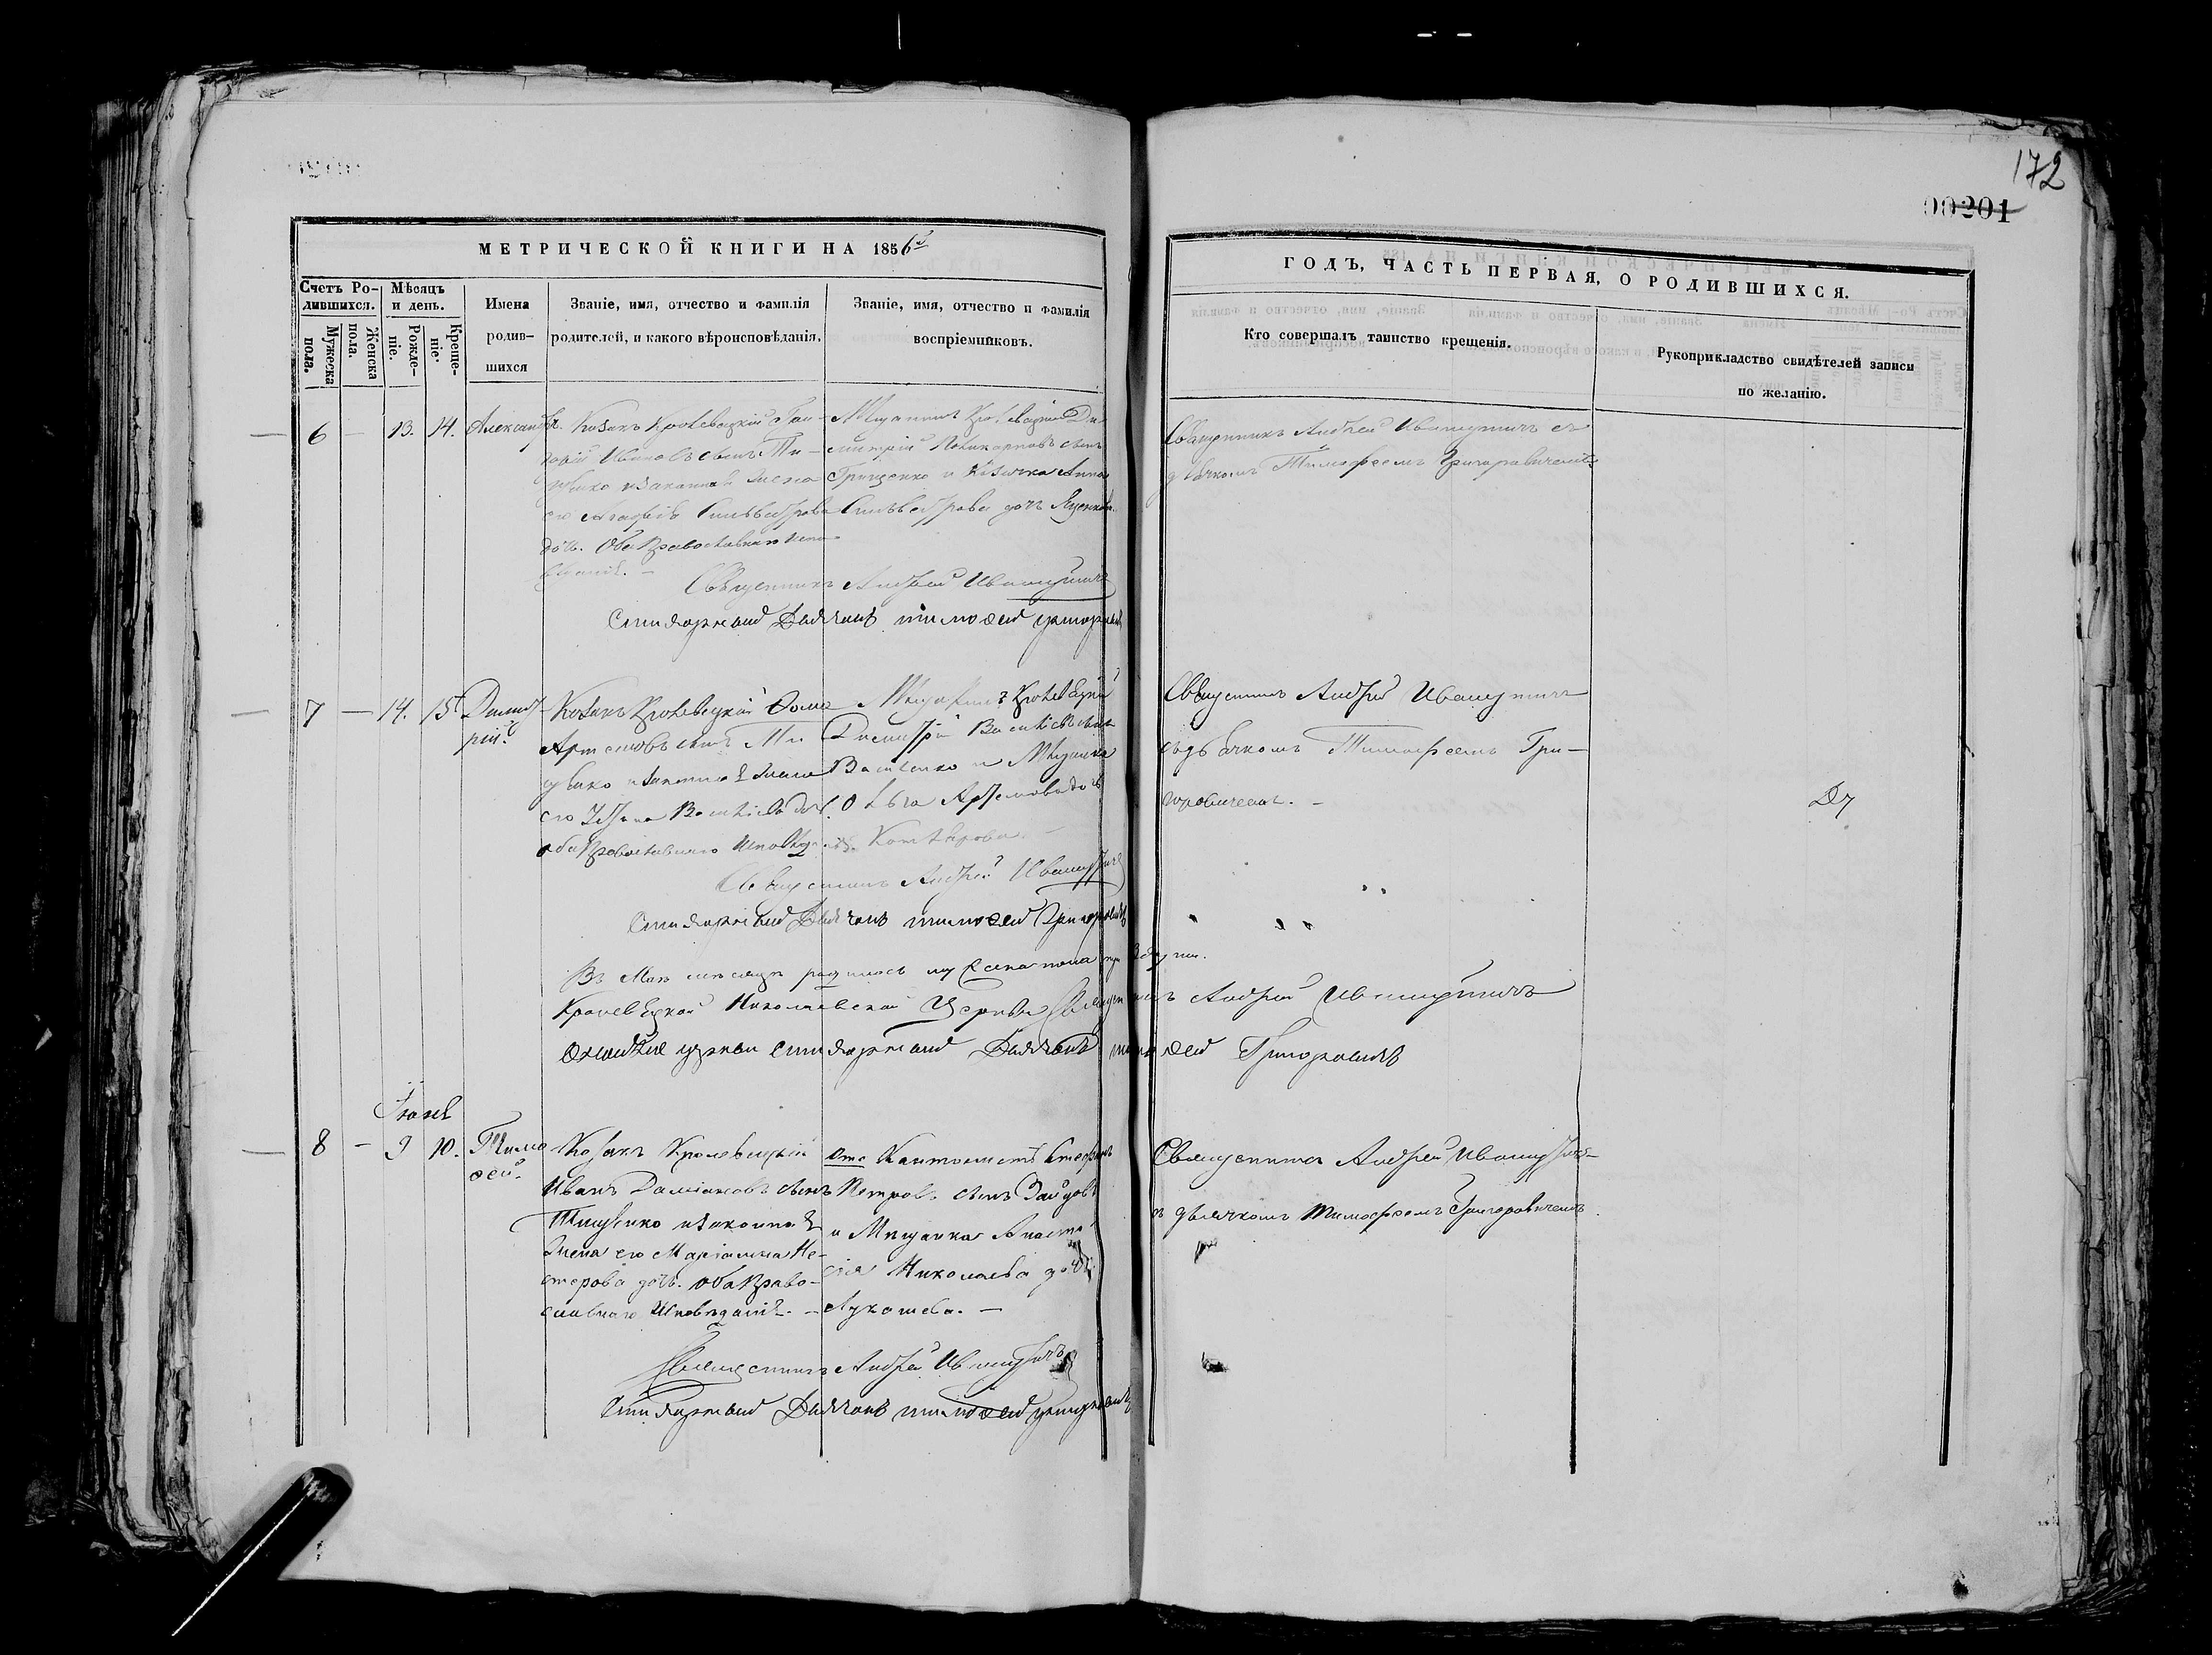 172
00201
МЕТРИЧЕСКОЙ КНИГИ НА 1856й
ГОДЪ, ЧАСТЬ ПЕРВАЯ, О РОДИВШИХСЯ.
Счетъ Ро-
дившихся.
Мужеска
пола.
Женска
пола.
Мѣсяцъ
и день.
Рожде-
ніе.
Креще-
ніе.
Имена
родив-
шихся
Званіе, имя, отчество и фамилія
родителей, и какого вѣроисповѣданія.
Званіе, имя, отчество и фамилія
воспріемниковъ.
Кто совершалъ таинство крещенія.
Рукоприкладство свидѣтелей записи
по желанію.
6 — 13. 14.
Александръ.
Козакъ Кролевецкій
Ивановъ сынъ Ти-
щенко и законная жена
его Агафія Сильвестрова
дочь. Оба Православнаго испо-
вѣданія. —
Мѣщанинъ Кролевецкій Ди-
митрій Поликарповъ сынъ
Грищенко и Козачка Анна
Сильвестрова дочь Яценкова.
Священникъ Андрей Ивашутичъ съ
дьячкомъ Тимофеемъ Григоровичемъ
Священникъ Андрей Ивашутичъ
Стихарный Дьячокъ Тимоѳей Григоровичъ
7 — 14. 15.
Димит-
рій.
Козакъ Кролевецкій Ѳома
Артемовъ сынъ Ти-
щенко и законная жена
его Васильева дочь.
оба Православнаго Исповѣданія.
Мѣщанинъ Кролевецкій
Димитрій Васильевъ сынъ
Василенко и Мѣщанка
Ольга Артемова дочь
Котлярова. —
Священникъ Андрей Ивашутичъ
съ дьячкомъ Тимофеемъ Гри-
горовичемъ. —
Священникъ Андрей Ивашутичъ
Стихарный Дьячокъ Тимоѳей Григоровичъ
Въ Маѣ мѣсяцѣ родилось мужеска пола
Кролевецкой Николаевской Церкви Священникъ Андрей Ивашутичъ
церкви Стихарный Дьячокъ Тимоѳей Григоровичъ
Іюнь
8 — 9 10.
Тимо
ѳей.
Козакъ Кролевецкій
Иванъ Даміановъ сынъ
Тищенко и законная
жена его Маріамна Не-
стерова дочь. оба Право-
славнаго Исповѣданія. —
Кантонистъ Стефанъ
Петровъ сынъ
и Мѣщанка Анаста-
сія Николаева дочь
Лукашева. —
Священникъ Андрей Ивашутичъ
съ дьячкомъ Тимофеемъ Григоровичемъ.
Священникъ Андрей Ивашутичъ
Стихарный Дьячокъ Тимоѳей Григоровичъ